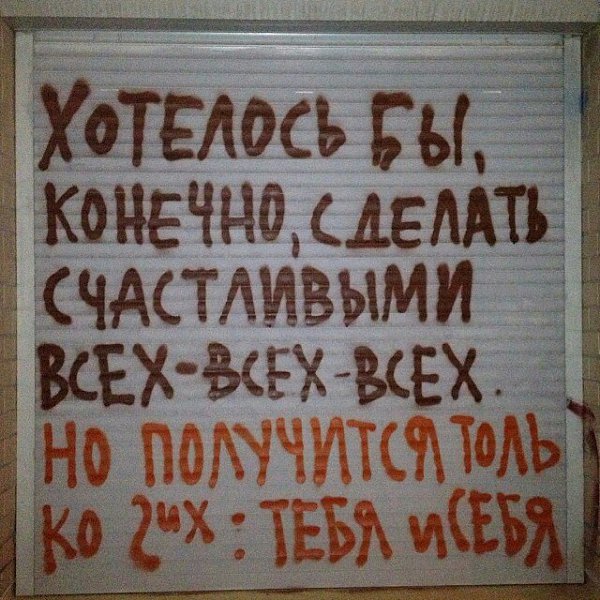 ХОТЕЛОСЬ БЫ,
КОНЕЧНО, СДЕЛАТЬ
СЧАСТЛИВЫМИ
ВСЕХ-ВСЕХ-ВСЕХ.
НО ПОЛУЧИТСЯ ТОЛЬ
КО 2ИХ: ТЕБЯ И СЕБЯ